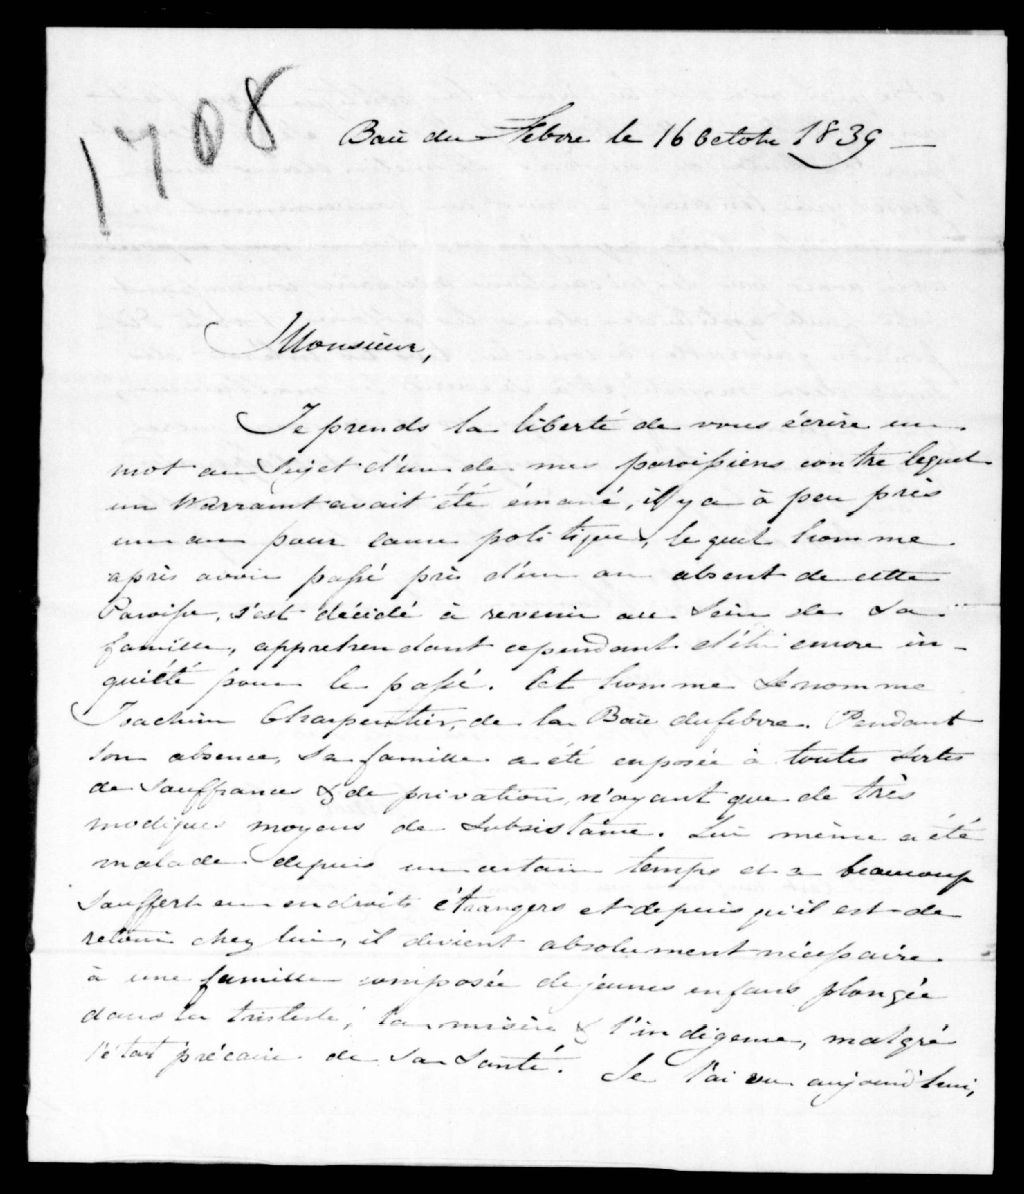 1708
Baie du Febvre le 16 Octobre 1839
Monsieur,
Je prends la liberté de vous écrire un
mot au Sujet d'un de mes paroissiens contre lequel
un Warrant avait été émané, il y a à peu près
un an pour cause politique, lequel homme
après avoir passé près d'un an absent de cette
Paroisse, s'est décidé à revenir au Sein de Sa
famille, apprehendant cependant d'être encore in-
quiété pour le passé. Cet homme Se nomme
Joachim Charpentier, de la Baie du febvre. Pendant
Son absence, Sa famille a été exposée à toutes Sortes
de Souffrances & de privations, n'ayant que de très
modiques moyens de Subsistance. Lui même a été
malade depuis un certain temps et a beaucoup
Souffert en endroits étrangers et depuis qu'il est de
retour chez lui, il devient absolument nécessaire
à une famille composée de jeunes enfans plongée
dans la tristesse, la misère & l'indigence, malgré
l'état précaire de Sa Santé. Je l'ai vu aujourd'hui,